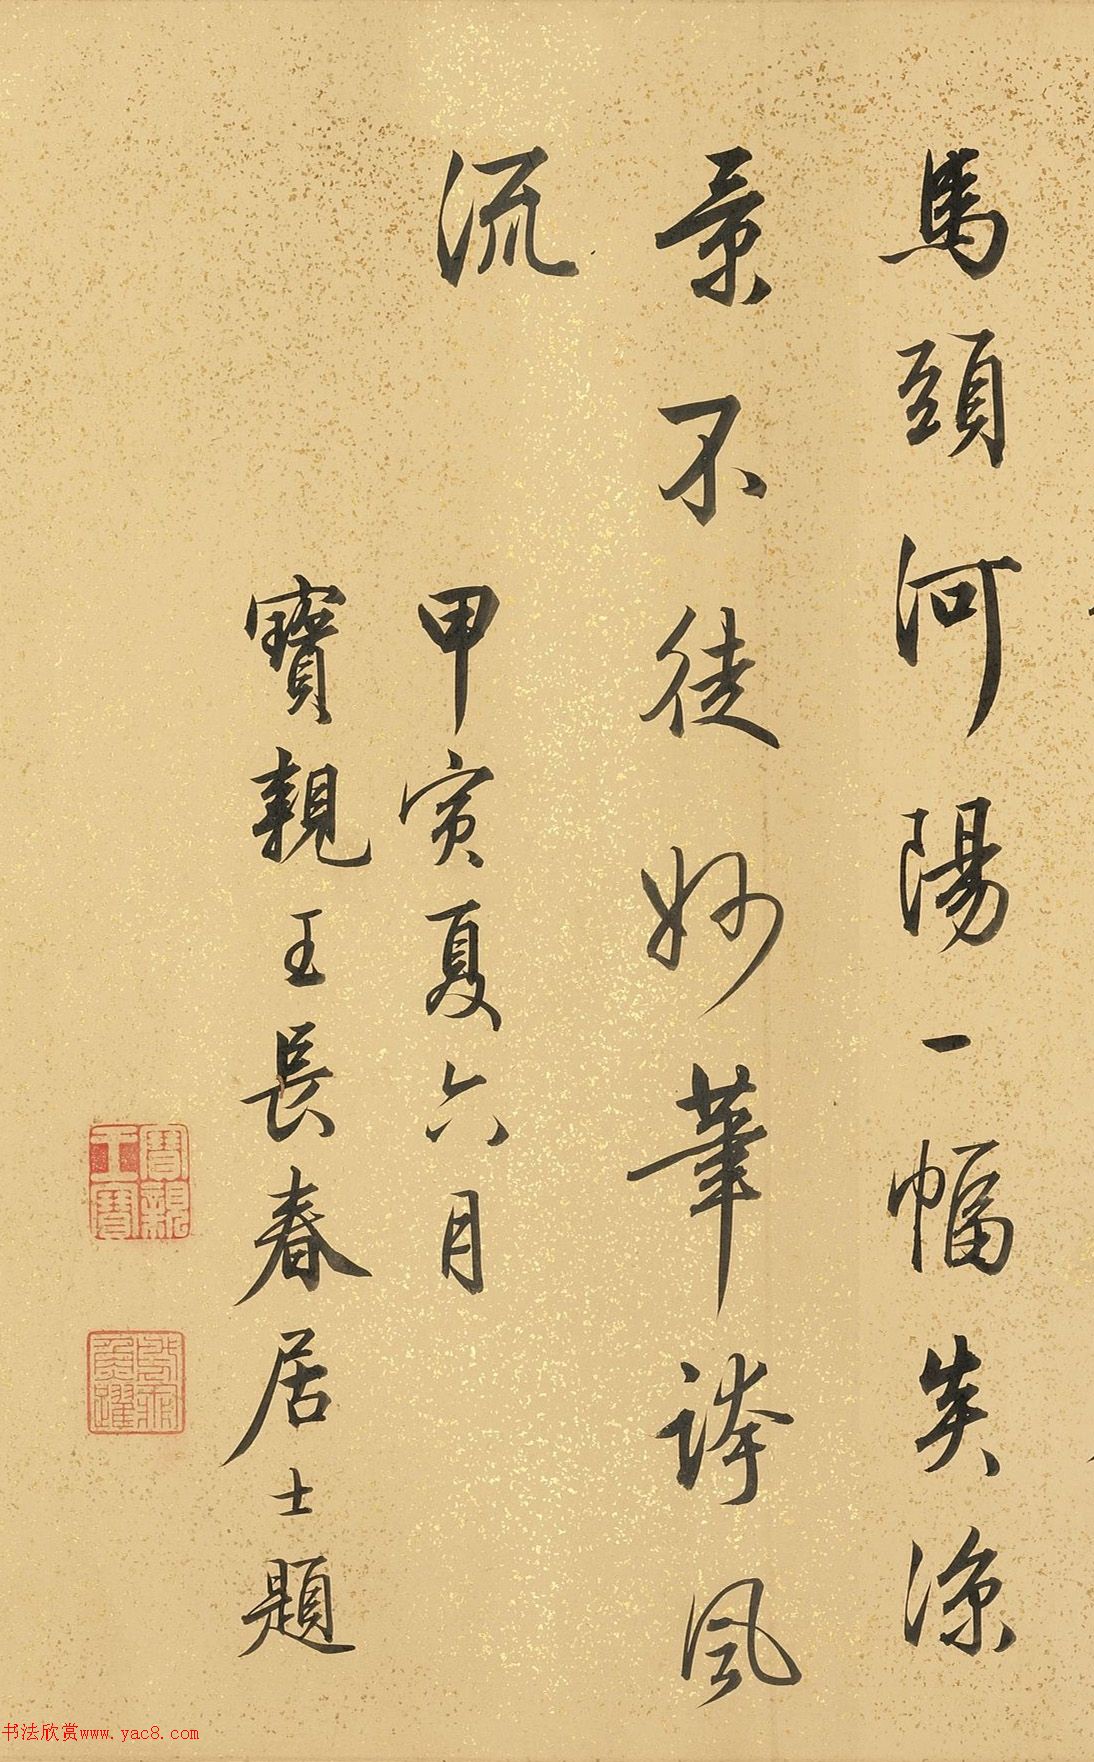 馬頭河陽一幅失涼
景不徒妙筆誇風
流
甲寅夏六月
寶親王長春居士題
寶親
王寶
書法欣賞www.yac8.com